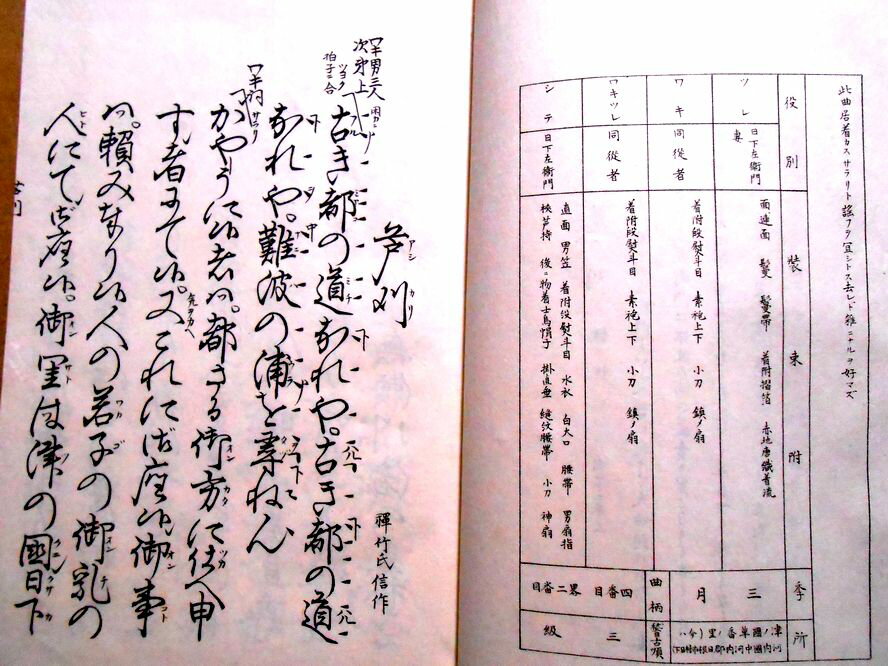 此曲居着カズサラリト謡フヲ宜シトス去レド雑ニナルヲ好マズ
役別 装束附 季 所
ツレ 日下左衛門妻 面連面 鬘 鬘帯 着附摺箔 赤地唐織着流
ワキ 同従者 着附段熨斗目 素袍上下 小刀 鎮ノ扇
ワキツレ 同従者 着附段熨斗目 素袍上下 小刀 鎮ノ扇
シテ 日下左衛門 直面 男笠 着附段熨斗目 水衣 白大口 腰帯 男扇指
挾芦持 後ニ物着士烏帽子 掛直垂 縫紋腰帯 小刀 神扇
三月
津ノ國草香ノ里
曲柄 四番目 畧二番目
稽古順 三級
芦刈
禪竹氏信作
ワキ男三人
次第上
ツヨク
拍子ニ合
古き都の道なれや。古き都の道
なれや。難波の浦を尋ねん
ワキ詞 サラリ
かやうに候者は。都さる御方に仕へ申
す者にて候。又これに御座候御事
は。頼みまゐり候人の若子の御乳の
人にて御座候。御里は津の國日下
芦刈